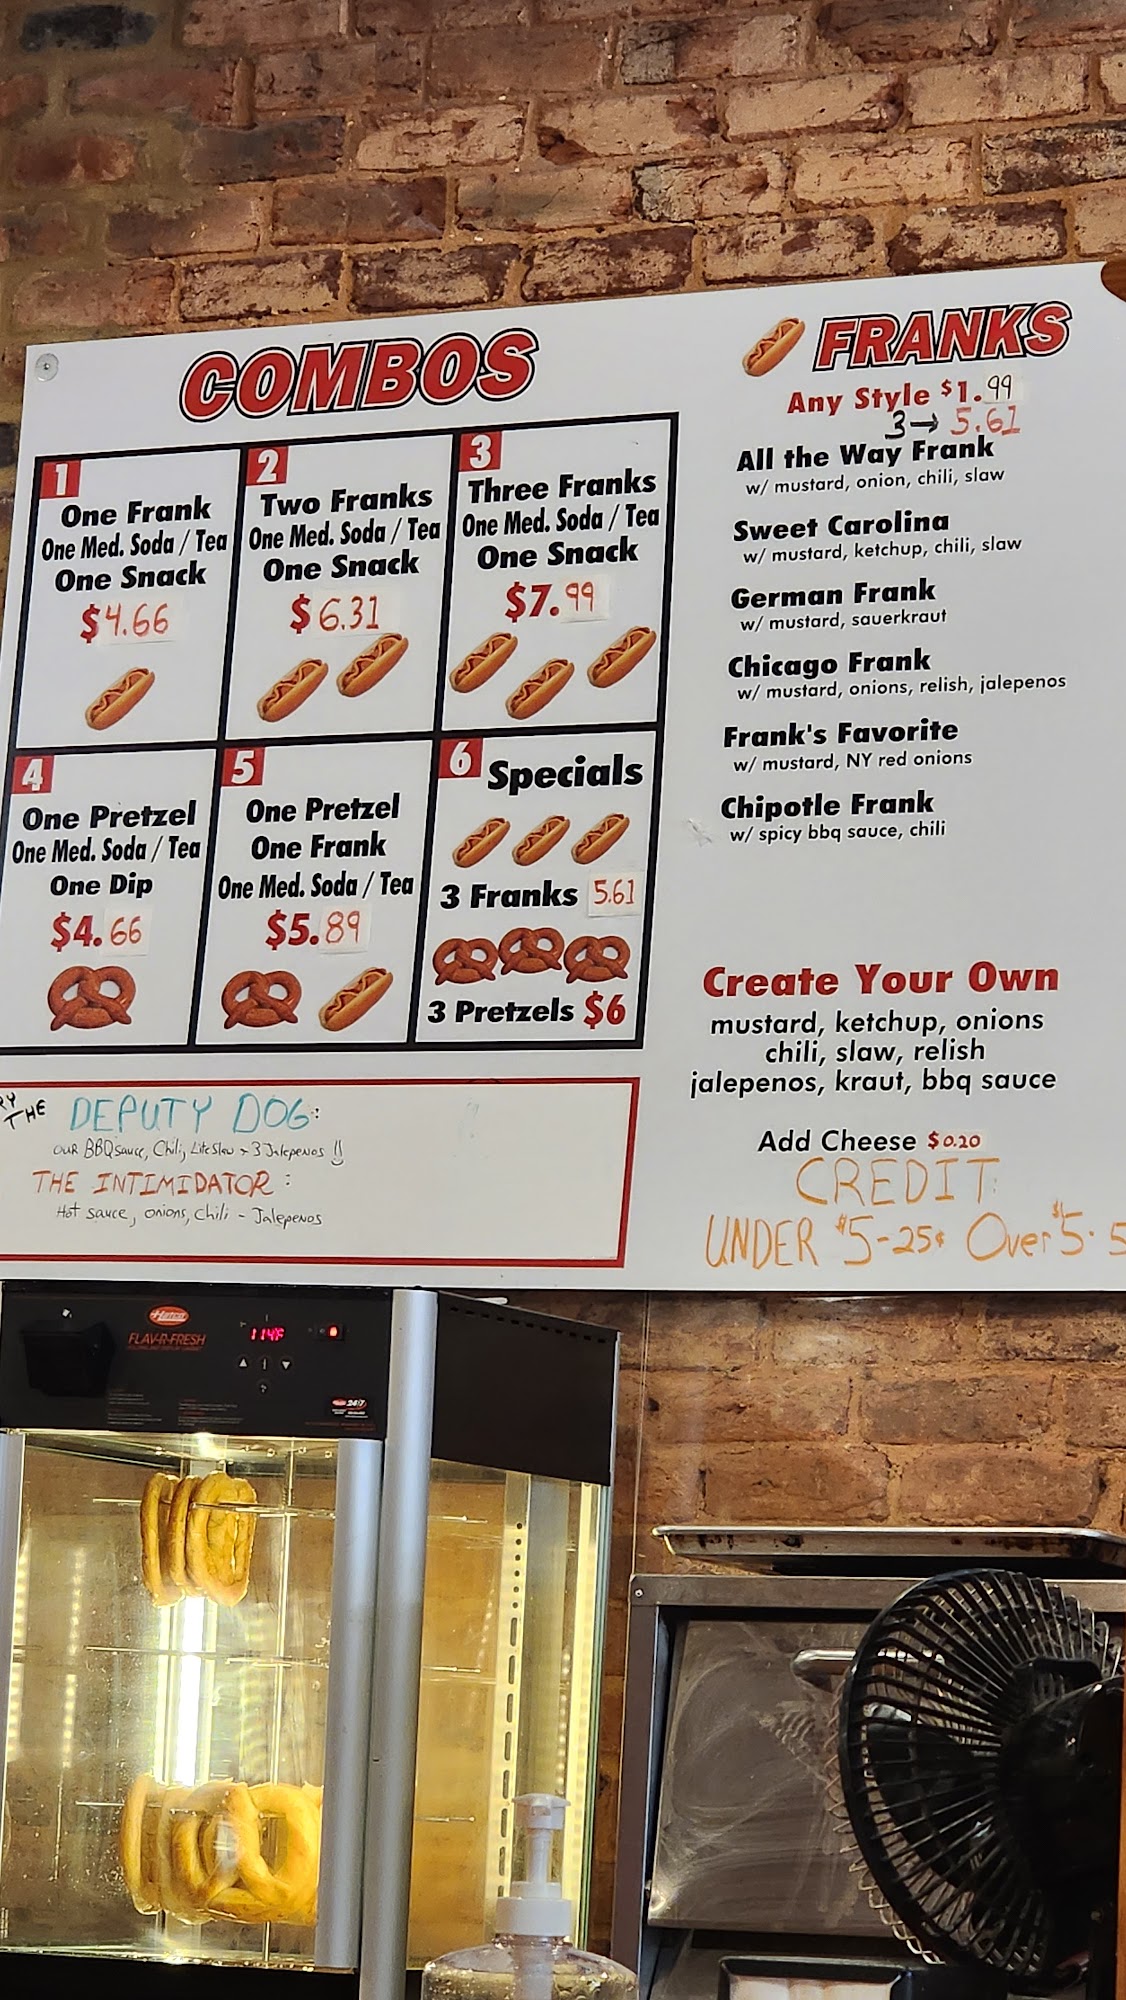 COMBOS
1
One Frank
One Med. Soda / Tea
One Snack
$4.66
2
Two Franks
One Med. Soda / Tea
One Snack
$6.31
3
Three Franks
One Med. Soda / Tea
One Snack
$7.99
4
One Pretzel
One Med. Soda / Tea
One Dip
$4.66
5
One Pretzel
One Frank
One Med. Soda / Tea
$5.89
6
Specials
3 Franks 5.61
3 Pretzels $6
THE DEPUTY DOG:
OUR BBQ sauce, Chili, Lite Slaw + 3 Jalepenos !!
THE INTIMIDATOR:
Hot sauce, onions, chili - Jalepenos
FRANKS
Any Style $1.99
3→ 5.61
All the Way Frank
w/ mustard, onion, chili, slaw
Sweet Carolina
w/ mustard, ketchup, chili, slaw
German Frank
w/ mustard, sauerkraut
Chicago Frank
w/ mustard, onions, relish, jalepenos
Frank's Favorite
w/ mustard, NY red onions
Chipotle Frank
w/ spicy bbq sauce, chili
Create Your Own
mustard, ketchup, onions
chili, slaw, relish
jalepenos, kraut, bbq sauce
Add Cheese $0.20
CREDIT
UNDER $5-25¢ Over $5.5
Hatco
FLAV-R-FRESH
114°F
24/7